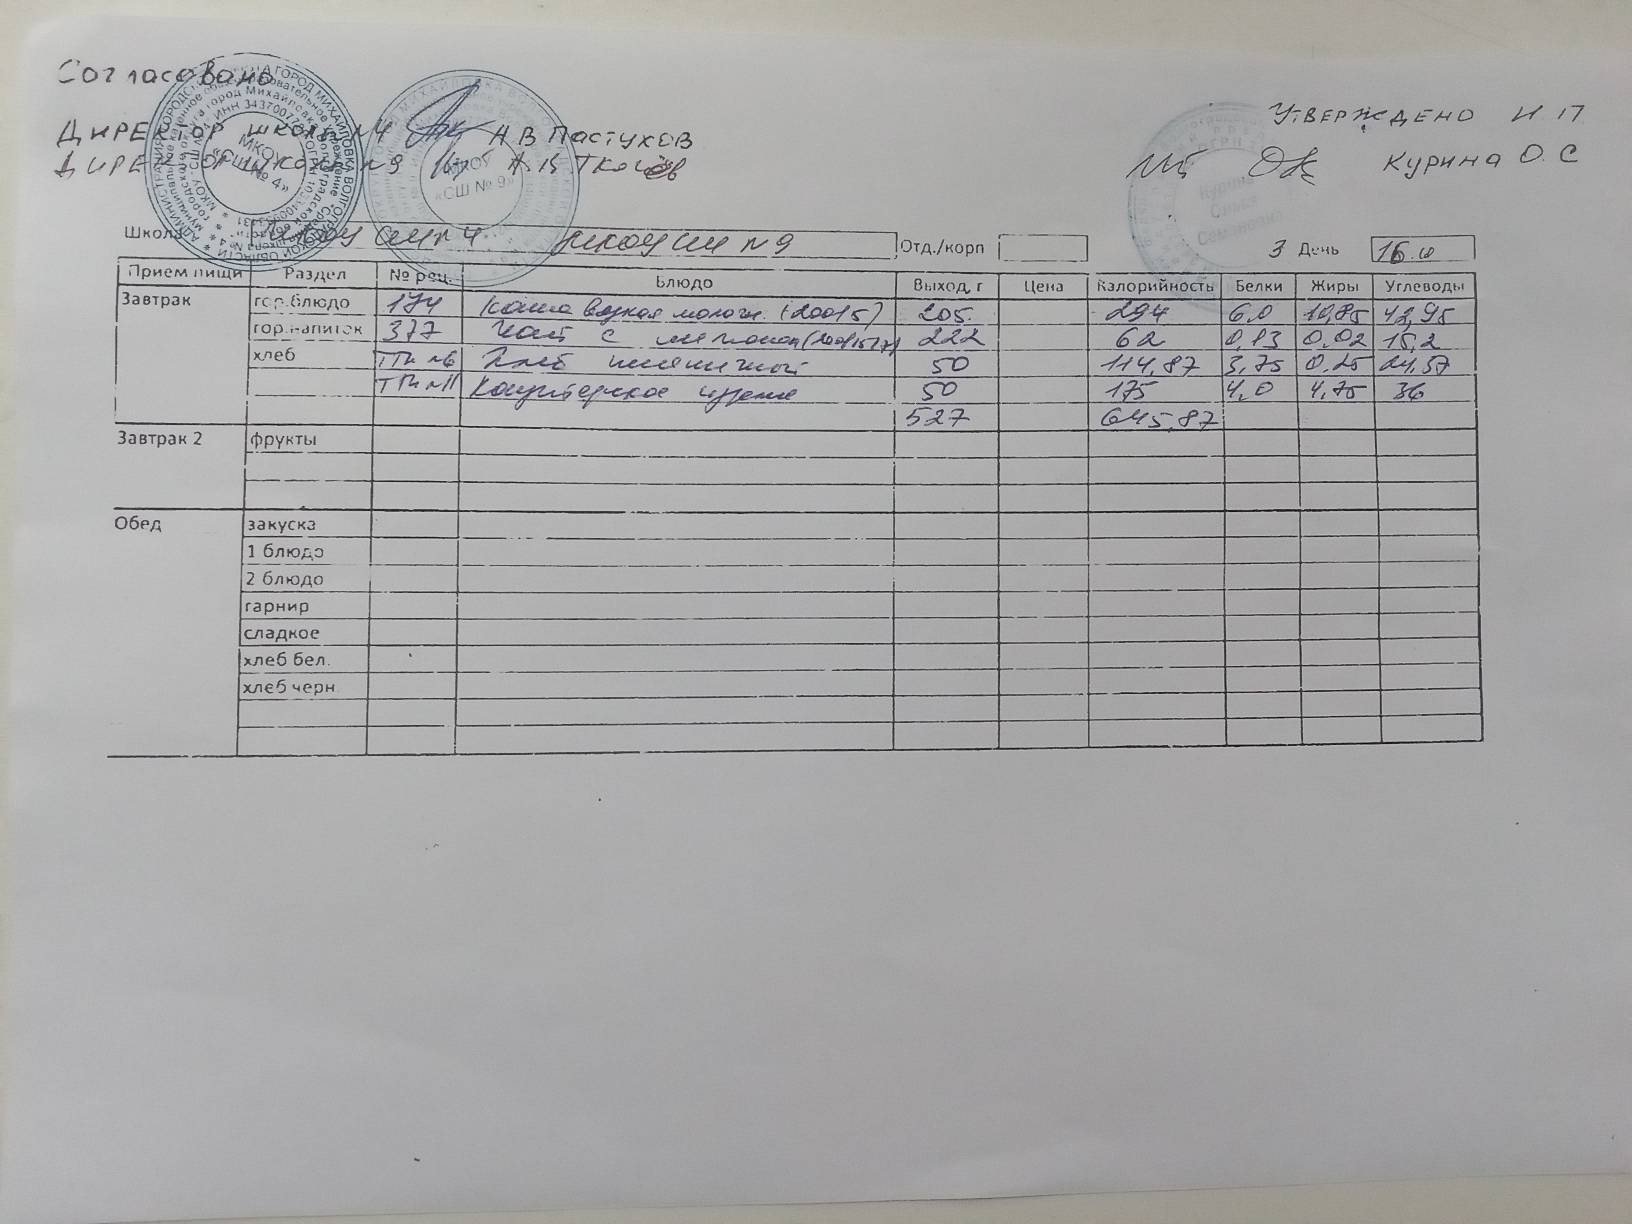 Согласовано
Директор школы №4 Н В Пастухов
Директор школы №9 А.В Ткачёв
Утверждено И П
Курина О. С
МКОУ «СШ № 4»
МКОУ «СШ № 9»
Курина
Семеновна
Школа МКОУ СШ №4 МКОУ СШ №9 Отд./корп 3 День 16.
Прием пищи Раздел № рец. Блюдо Выход, г Цена Калорийность Белки Жиры Углеводы
Завтрак гор.блюдо 174 Каша вязкая молочн. (200/5) 205. 294 6,0 10,85 42,95
гор.напиток 377 Чай с лимоном (200/15/7) 222 62 0,13 0,02 15,2
хлеб ТТК №6 Хлеб пшеничный 50 114,87 3,75 0,25 24,37
ТТК №11 Кондитерское изделие 50 175 4,0 4,75 36
527 645,87
Завтрак 2 фрукты
Обед закуска
1 блюдо
2 блюдо
гарнир
сладкое
хлеб бел.
хлеб черн